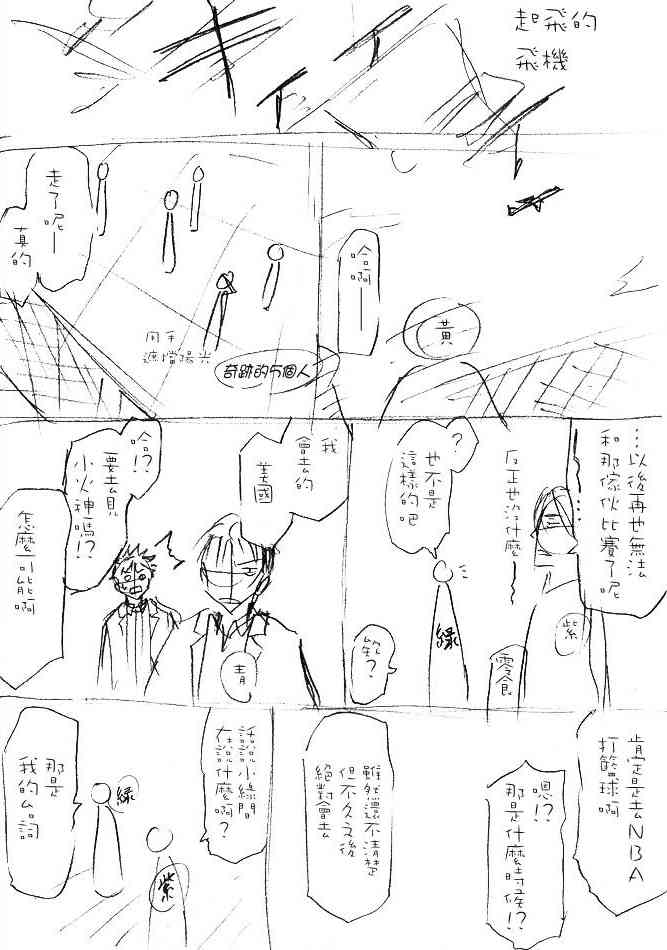 起飛的
飛機
哈啊——
黃
走了呢—
真的
用手
遮擋陽光
奇跡的5個人
…以後再也無法
和那傢伙比賽了呢
……
反正也沒什麼——
紫
零食
?
也不是
這樣的吧
綠
笨?
我
會去的
美國
青
哈!?
要去見
小火神嗎!?
怎麼可能啊
肯定是去NBA
打籃球啊
嗯!?
那是什麼時候!?
雖然還不清楚
但不久之後
絕對會去
話說小綠間
在說什麼啊?
綠
紫
那是
我的台詞